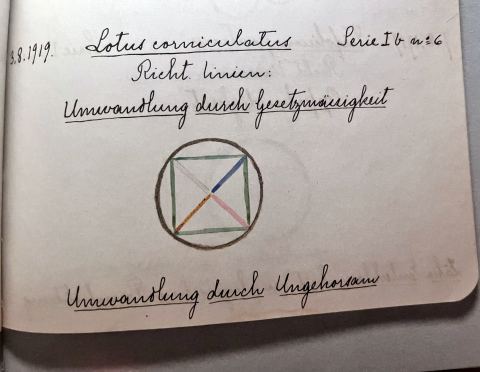 3.8.1919. Lotus corniculatus Serie I b nº 6
Richt. linien:
Umwandlung durch Gesetzmässigkeit
Umwandlung durch Ungehorsam